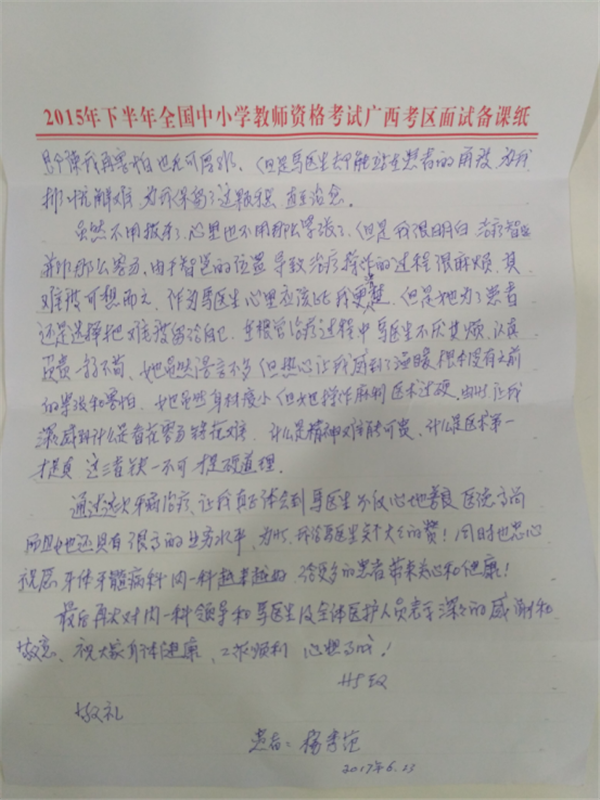 2015年下半年全国中小学教师资格考试广西考区面试备课纸
我再害怕也无可厚非。但是马医生却能站在患者的角度，为我
排忧解难，为我保留了这颗牙，直至治愈。
虽然不用拔牙了，心里也不用那么紧张了，但是我很明白治疗智齿
并非那么容易，由于智齿的位置导致治疗操作的过程很麻烦，其
难度可想而之，作为马医生心里应该比我更清楚，但是她为了患者
还是选择把难度留给自已，在根管治疗过程中马医生不厌其烦，认真
负责，一丝不苟，她虽然语言不多但热心让我感到了温暖，根本没有之前
的紧张和害怕，她虽然身材瘦小但她操作麻利医术过硬，由此让我
深感到什么是看花容易绣花难，什么是精神难能可贵，什么是医术第一
才是真，这三者缺一不可才是硬道理。
通过这次牙病治疗，让我真正体会到马医生不仅心地善良医德高尚
而且她还具有很高的业务水平，为此，我给马医生点个大大的赞！同时也忠心
祝愿牙体牙髓病科内一科越来越好，给更多的患者带来关心和健康！
最后再次对内一科领导和马医生及全体医护人员表示深深的感谢和
敬意，祝大家身体健康，工作顺利，心想事成！
此致
敬礼
患者：杨
2017年6.23